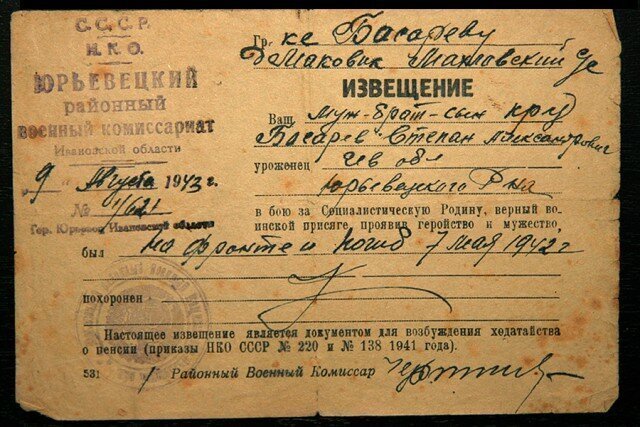 С. С. С. Р.
Н. К. О.
ЮРЬЕВЕЦКИЙ
районный
военный комиссариат
Ивановской области
"9" Августа 1943 г.
№ 1/621
Гор. Юрьевец Ивановской области
Гр. ке Басареву
ИЗВЕЩЕНИЕ
Ваш муж-брат-сын кр
Басарев Степан Александрович
уроженец обл
Юрьевецкого р на
в бою за Социалистическую Родину, верный во-
инской присяге, проявив геройство и мужество,
был на фронте и погиб 7 мая 1942 г
похоронен
Настоящее извещение является документом для возбуждения ходатайства
о пенсии (приказы НКО СССР № 220 и № 138 1941 года).
531 Районный Военный Комиссар